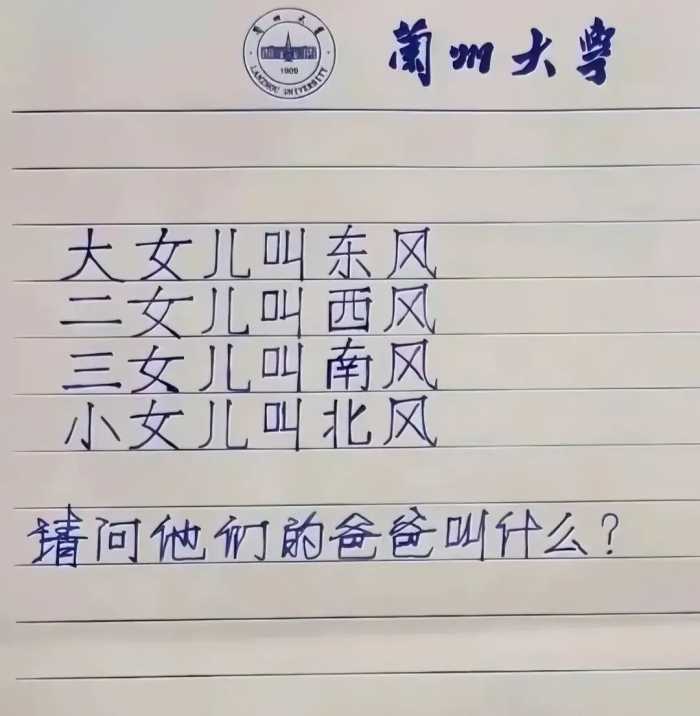 兰州大学
LANZHOU UNIVERSITY
1909
蘭州大學
大女儿叫东风
二女儿叫西风
三女儿叫南风
小女儿叫北风
请问他们的爸爸叫什么?